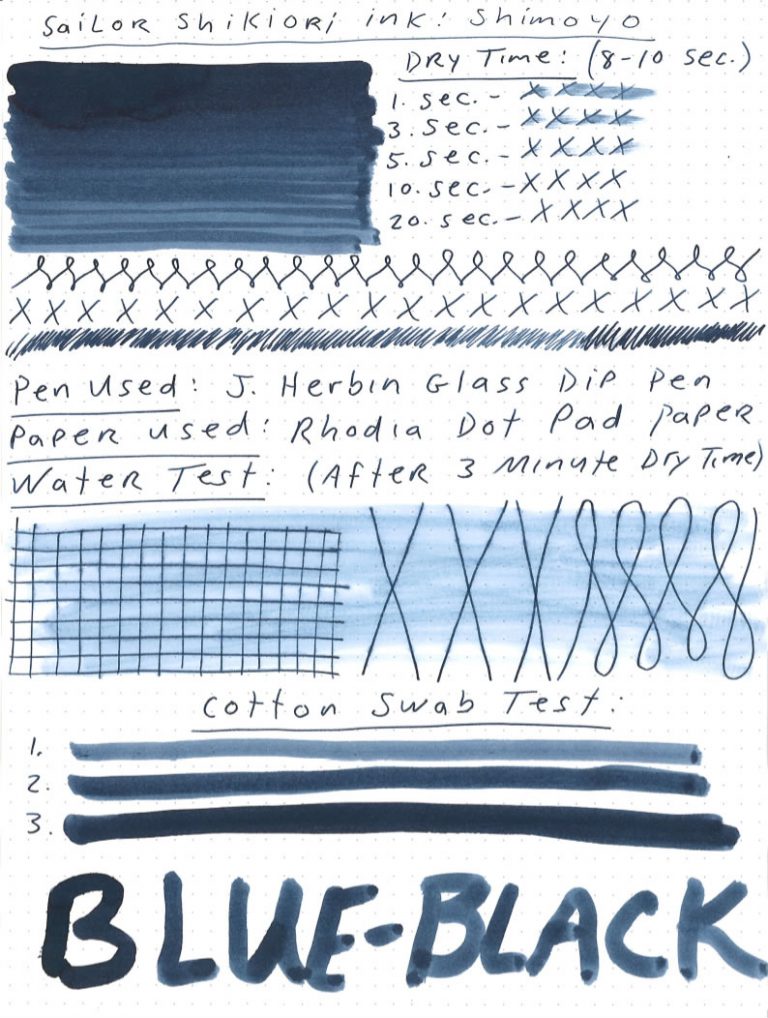 Sailor Shikiori ink: Shimoyo
Dry Time: (8-10 sec.)
1. sec. - X X X X
3. sec. - X X X X
5. sec. - X X X X
10. sec. - X X X X
20. sec. - X X X X
X X X X X X X X X X X X X X X X X X X
Pen Used: J. Herbin Glass Dip Pen
Paper used: Rhodia Dot Pad paper
Water Test: (After 3 Minute Dry Time)
Cotton Swab Test:
1.
2.
3.
BLUE-BLACK